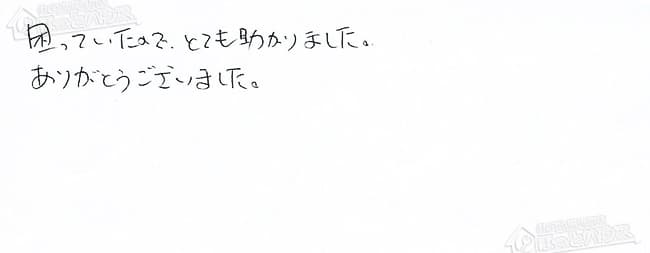 困っていたので、とても助かりました。
ありがとうございました。